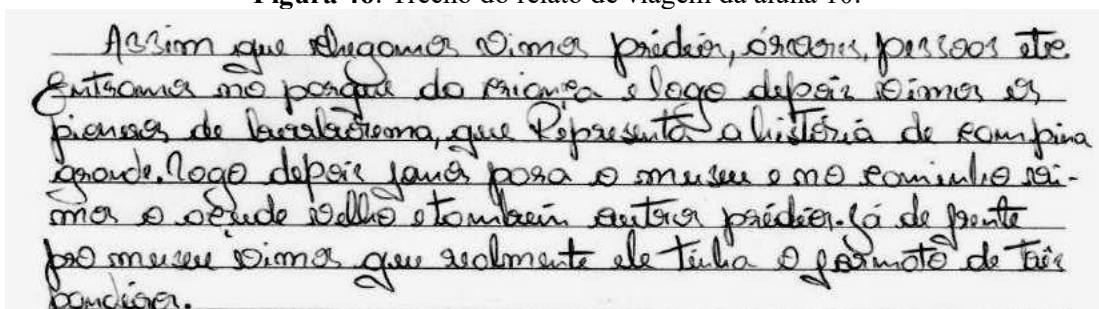 Figura 40: Trecho do relato de viagem da aluna 10.
Assim que chegamos vimos prédios, árvores, pessoas etc.
Entramos no parque da criança e logo depois vimos os
pioneiros de borborema, que Representa a história de campina
grande. logo depois fomos para o museu e no caminho vi-
mos o açude velho e também outros prédios. Já de frente
pro museu vimos que realmente ele tinha o formato de três
pandeiros.